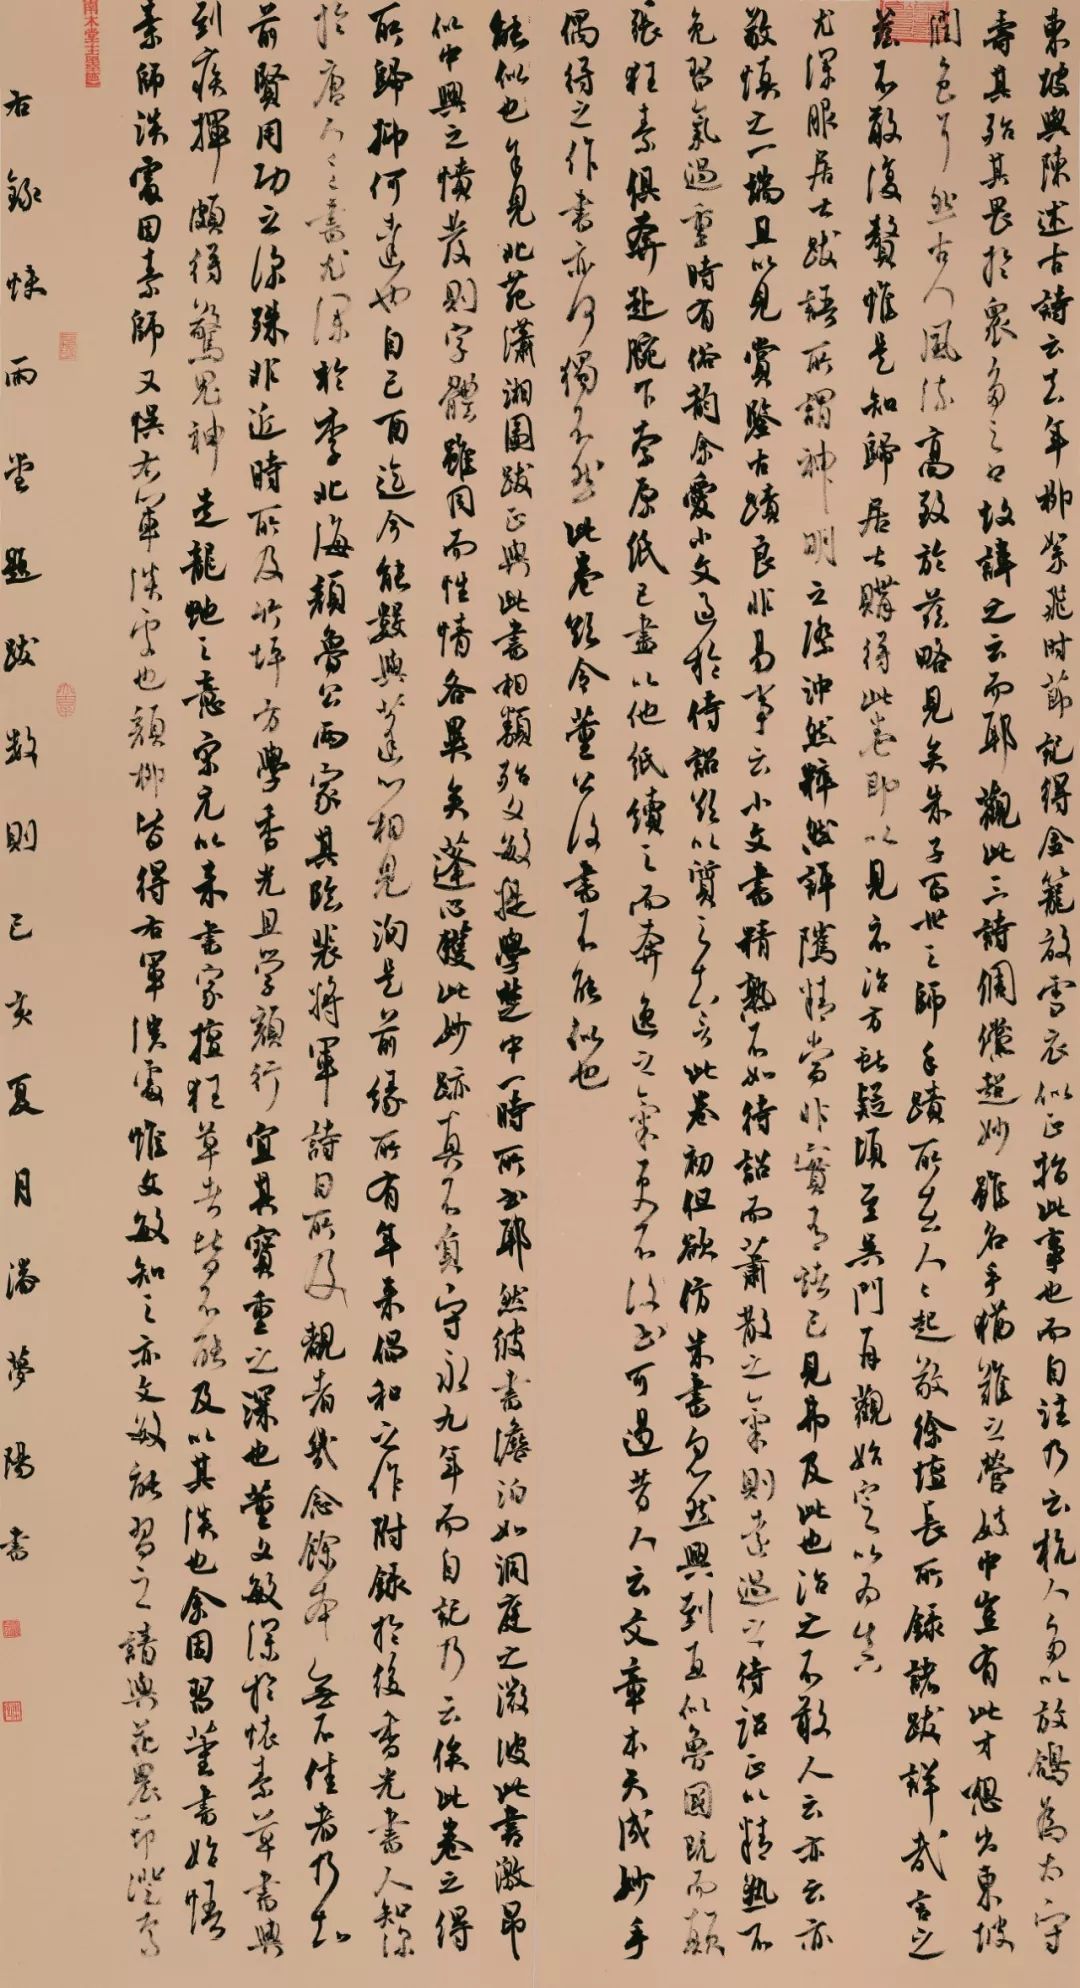 東坡與陳述古詩云去年柳絮飛時節記得金籠放雪衣似正指此事也而自註乃云杭人每以放鴿為太守
壽其殆其畏於眾多之口故諱之云而耶觀此三詩倜儻超妙雖名手猶難之營妓中豈有此才想出東坡
潤色耳然古人風流高致於茲略見矣朱子百世之師手蹟所在人人起敬徐壇長所錄諸跋詳哉言之
茲不敢復贅惟是知歸居士購得此卷即以見示治方馳疑頃至吳門再觀始定以為真
尤深服居士跋語所謂神明之際沖然粹然評隲精當非實有諸己見弗及此也治之不敢人云亦云亦
敬慎之一端且以見賞鑒古蹟良非易事云小文書精熟不如待詔而蕭散之氣則遠過之待詔正以精熟不
免習氣過重時有俗韵余愛小文過於待詔跋以質之 此卷初但欲仿朱書忽然興到直似魯國既而顛
張狂素俱奔赴腕下奈原紙已盡以他紙續之而奔逸之氣更不復出可過昔人云文章本天成妙手
偶得之作書亦何獨不然此卷跋令董公復書不能似也
能似也多見北苑瀟湘圖跋正與此書相類殆文敏提學楚中一時所書耶然彼書澹泊如洞庭之微波此書激昂
似中興之憤發則字體雖同而性情各異矣蓬心獲此妙跡真不負守永九年而自記乃云俟此卷之得
所歸抑何達也自己酉迄今能數與蓬心相見洵是前緣所有年來倡和之作附錄於後香光書人知深
於唐人之書尤深於李北海顏魯公兩家其臨裴將軍詩日所及覩者幾念餘本無不佳者乃知
前賢用功之深殊非近時所及竹坪方學香光且學顏行宜其寶重之深也董文敏深於懷素草書興
到疾揮頗得驚鬼神走龍蛇之意宋元以來書家擅狂草者皆不能及以其淡也余因習董書始悟
素師淡處因素師又悟右軍淡處也顏柳皆得右軍淡處惟文敏知之亦文敏能習之請與花農節澄齋
右錄快雨堂題跋數則己亥夏月潘夢陽書